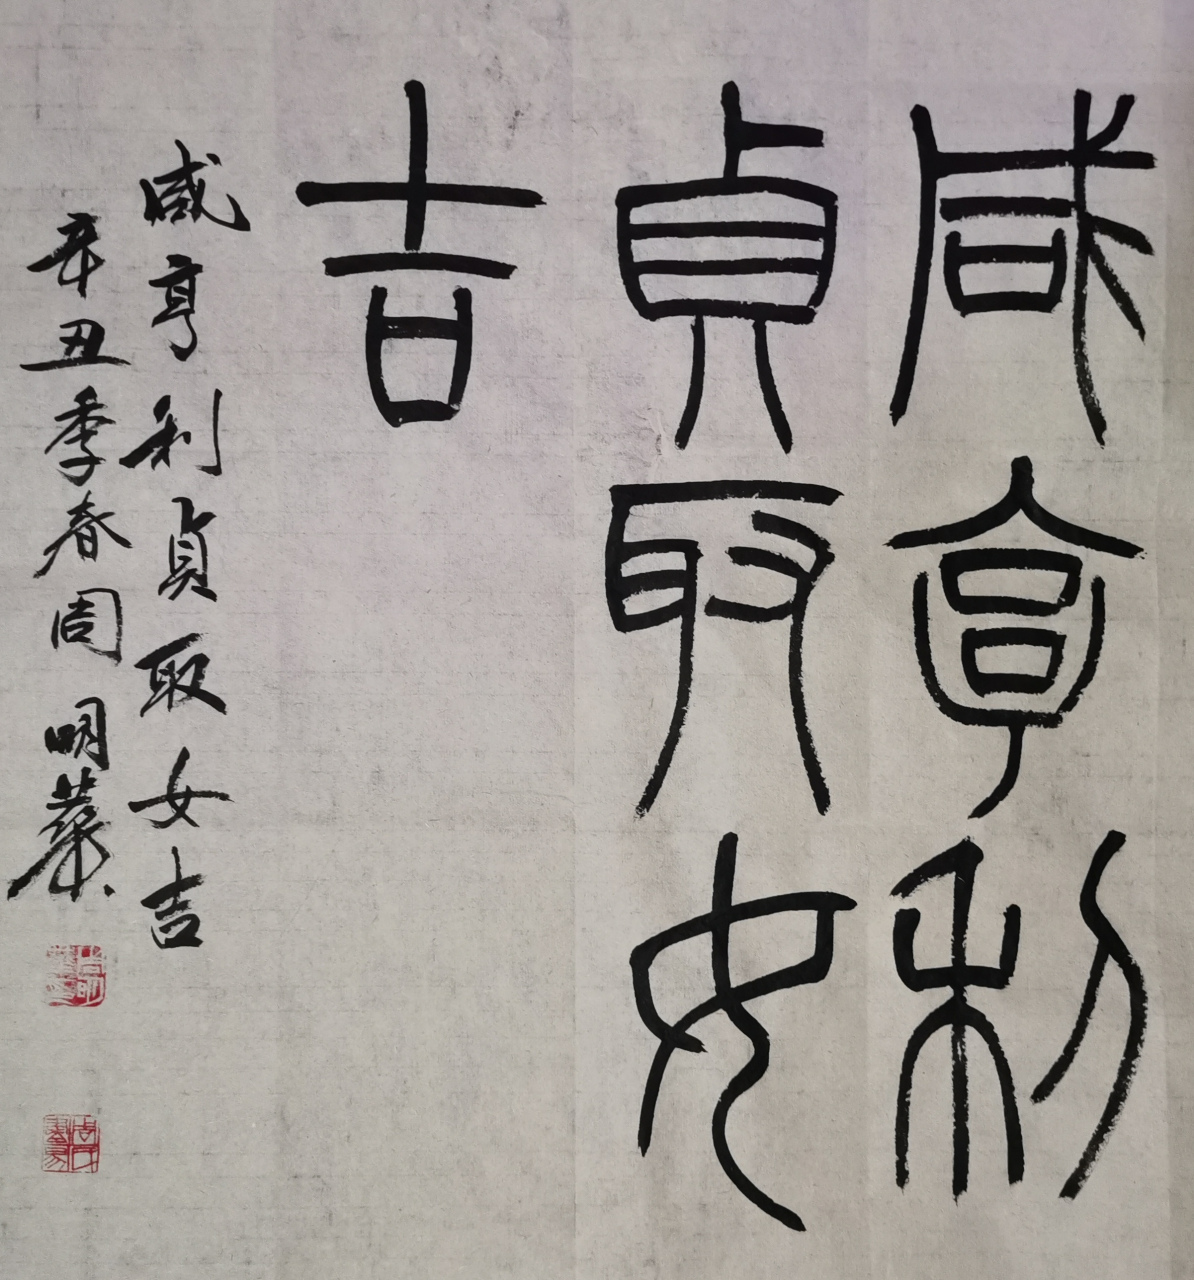 咸亨利
貞取女
吉
咸亨利貞取女吉
辛丑季春周明華